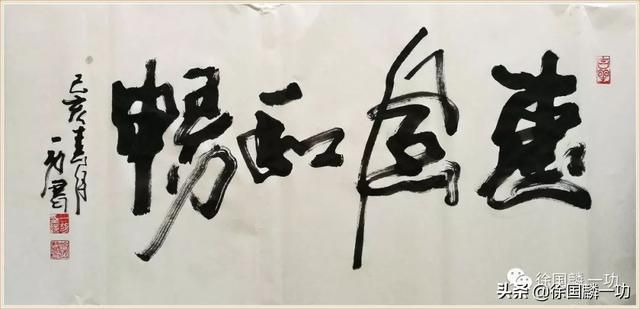 惠風和暢
己亥春月
一功書
徐国麟一功
头条 @徐国麟一功